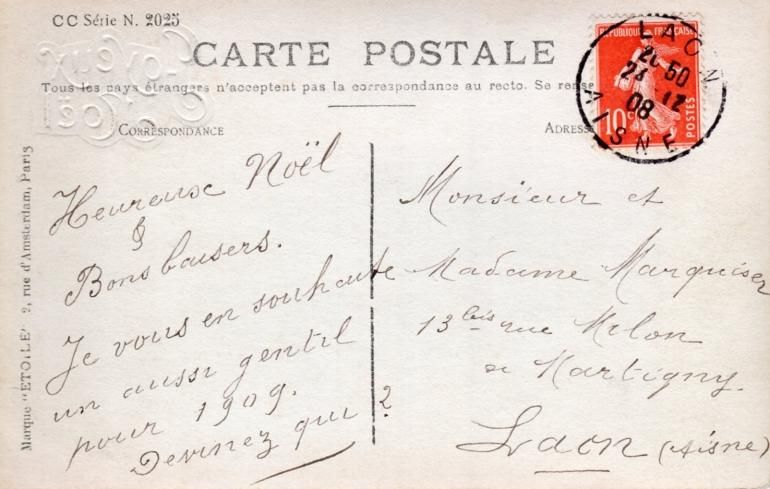 CC Série N. 2025
Joyeux
Noël
CARTE POSTALE
Tous les pays étrangers n'acceptent pas la correspondance au recto. Se rense
CORRESPONDANCE
ADRESSE
REPUBLIQUE FRANÇAISE
10c POSTES
LAON
23 12
08
AISNE
Marque "ETOILE" 2, rue d'Amsterdam, Paris
Heureuse Noël
&
Bons baisers.
Je vous en souhaite
un aussi gentil
pour 1909.
Devinez qui ?
Monsieur et
Madame Marquiser
13 bis rue Milon
de Martigny.
Laon (Aisne)